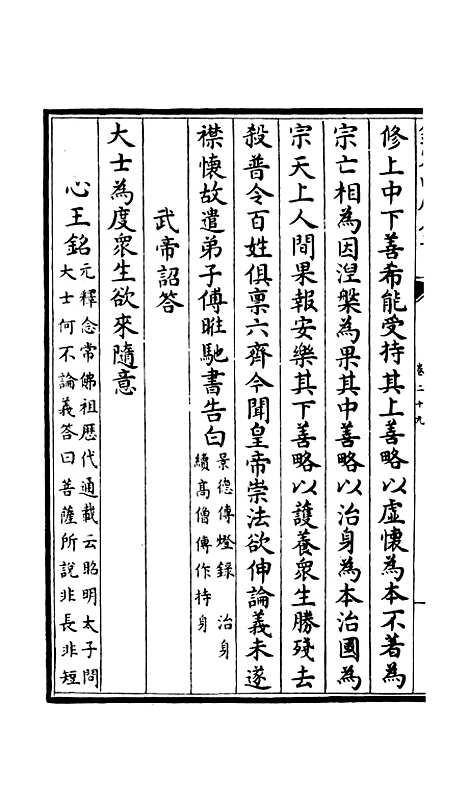 卷二十九
一
修上中下善希能受持其上善略以虛懷為本不著為
宗亡相為因涅槃為果其中善略以治身為本治國為
宗天上人間果報安樂其下善略以護養衆生勝殘去
殺普令百姓俱禀六齊今聞皇帝崇法欲伸論義未遂
襟懷故遣弟子傅暀馳書告白
景德傳燈錄　治身
續高僧傳作持身
武帝詔答
大士為度衆生欲來隨意
心王銘
元釋念常佛祖歷代通載云昭明太子問
大士何不論義答曰菩薩所說非長非短